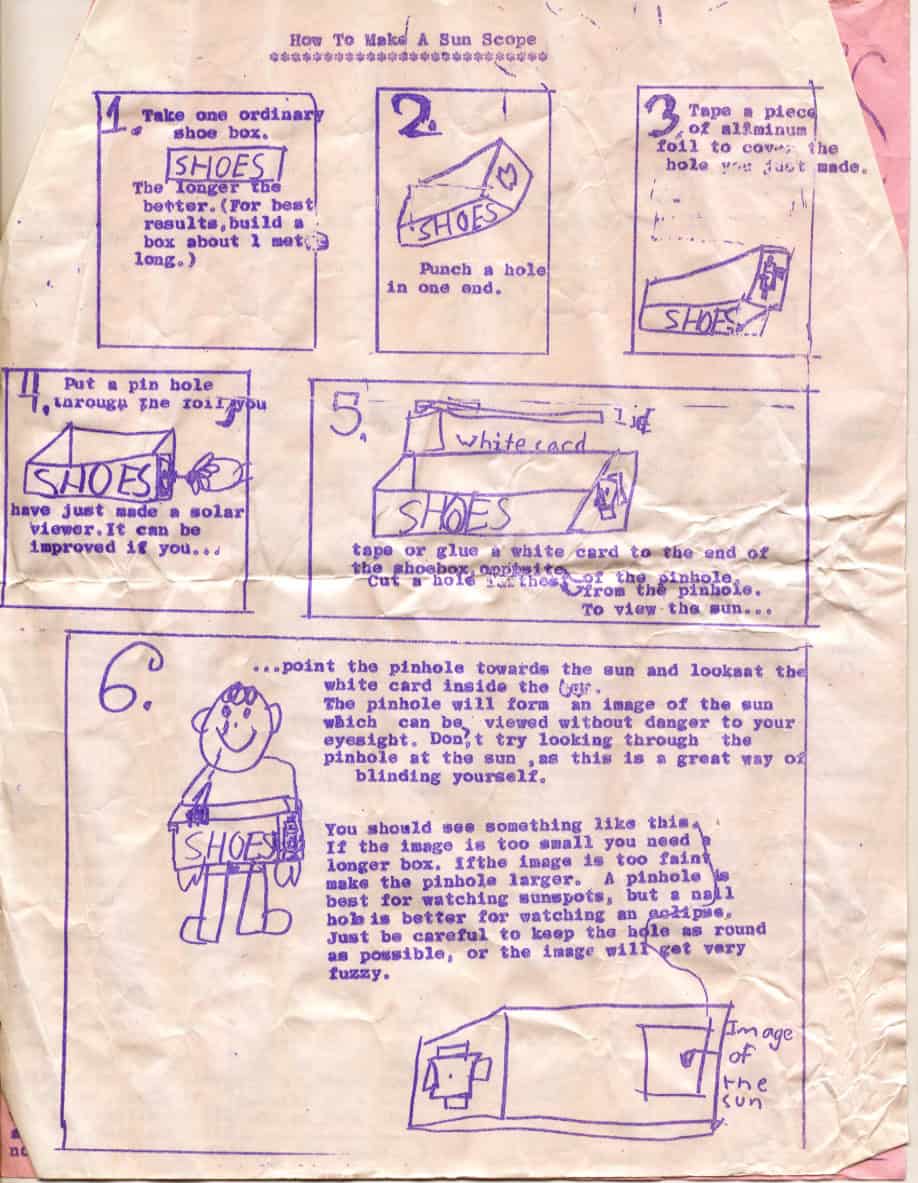 How To Make A Sun Scope
1. Take one ordinary
shoe box.
SHOES
The longer the
better.(For best
results,build a
box about 1 met
long.)
2.
SHOES
Punch a hole
in one end.
3. Tape a piece
of aluminum
foil to cover the
hole you just made.
SHOES
4. Put a pin hole
through the foil, you
SHOES
have just made a solar
viewer.It can be
improved if you...
5.
lid
white card
SHOES
tape or glue a white card to the end of
the shoebox opposite
Cut a hole furthest of the pinhole.
from the pinhole.
To view the sun...
6.
...point the pinhole towards the sun and look at the
white card inside the
The pinhole will form an image of the sun
which can be viewed without danger to your
eyesight. Don't try looking through the
pinhole at the sun ,as this is a great way of
blinding yourself.
SHOES
You should see something like this.
If the image is too small you need a
longer box. Ifthe image is too faint
make the pinhole larger. A pinhole is
best for watching sunspots, but a nail
hole is better for watching an eclipse.
Just be careful to keep the hole as round
as possible, or the image will get very
fuzzy.
Image
of
the
sun